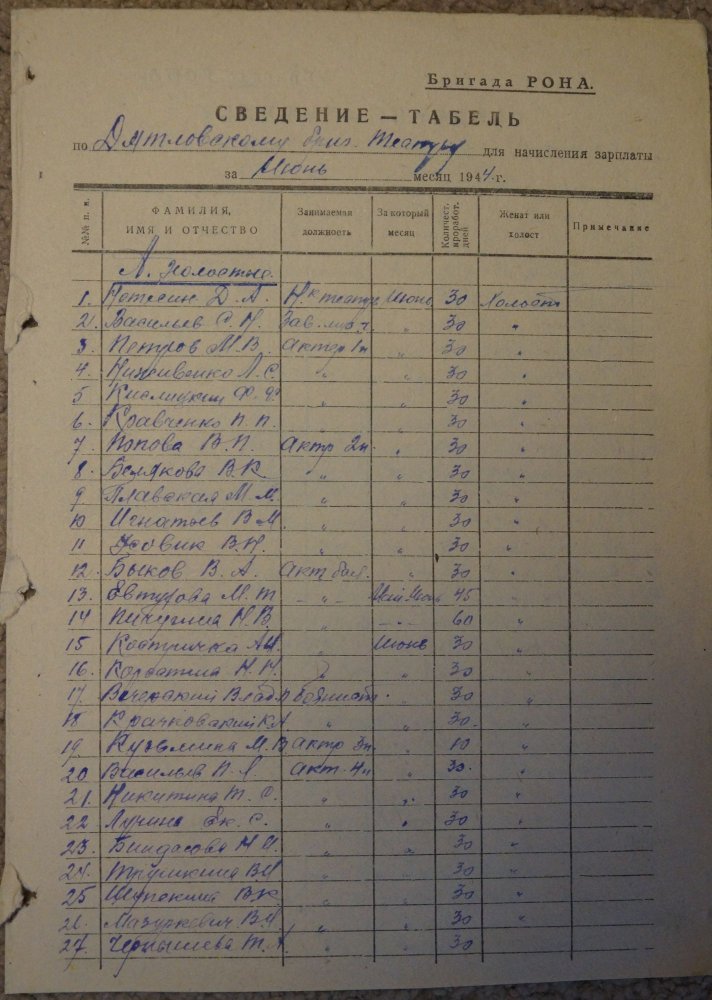 Бригада РОНА.
СВЕДЕНИЕ — ТАБЕЛЬ
по Дятловскому театру для начисления зарплаты
за Июнь месяц 1944 г.
№№ п. п. ФАМИЛИЯ, ИМЯ И ОТЧЕСТВО Занимаемая должность За который месяц Количест. проработ. дней Женат или холост Примечание
А. Холостые
1. Д. А. Июнь 30 Холост
2. Васильев С. Н. Зав. „ 30 „
3. Петров М. В. актер 1к „ 30 „
4. Л. С. „ „ 30 „
5 Кислицкий „ „ 30 „
6. Кравченко П. П. „ „ 30 „
7. Попова В. П. Актр 2к. „ 30 „
8. Белякова В. К. „ „ 30 „
9 Плавская М. М. „ „ 30 „
10 Игнатьев В. М. „ „ 30 „
11 В. Н. „ „ 30 „
12 Быков В. А. Акт „ 30 „
13. Евтухова М. Т. — „ — Июнь 45 „
14 Пичугина Н. В. „ — „ — 60 „
15 „ Июнь 30 „
16. Н. Н. „ „ 30 „
17. Влад. „ 30 „
18 Крачковский К. А „ „ 30. „
19. Кузьмина М. В Актр 3к. „ 10 „
20 Васильев П. Акт. 4к „ 30. „
21. Никитина Т. С. „ „ 30 „
22 Лучина Ек. С. „ „ 30 „
23. Биндасова Н. „ „ 30 „
24. Трумкина В. „ „ 30 „
25 Щепкина В. К. „ „ 30 „
26. Мазуркевич В. „ „ 30 „
27. Чернышева Т. А. „ „ 30